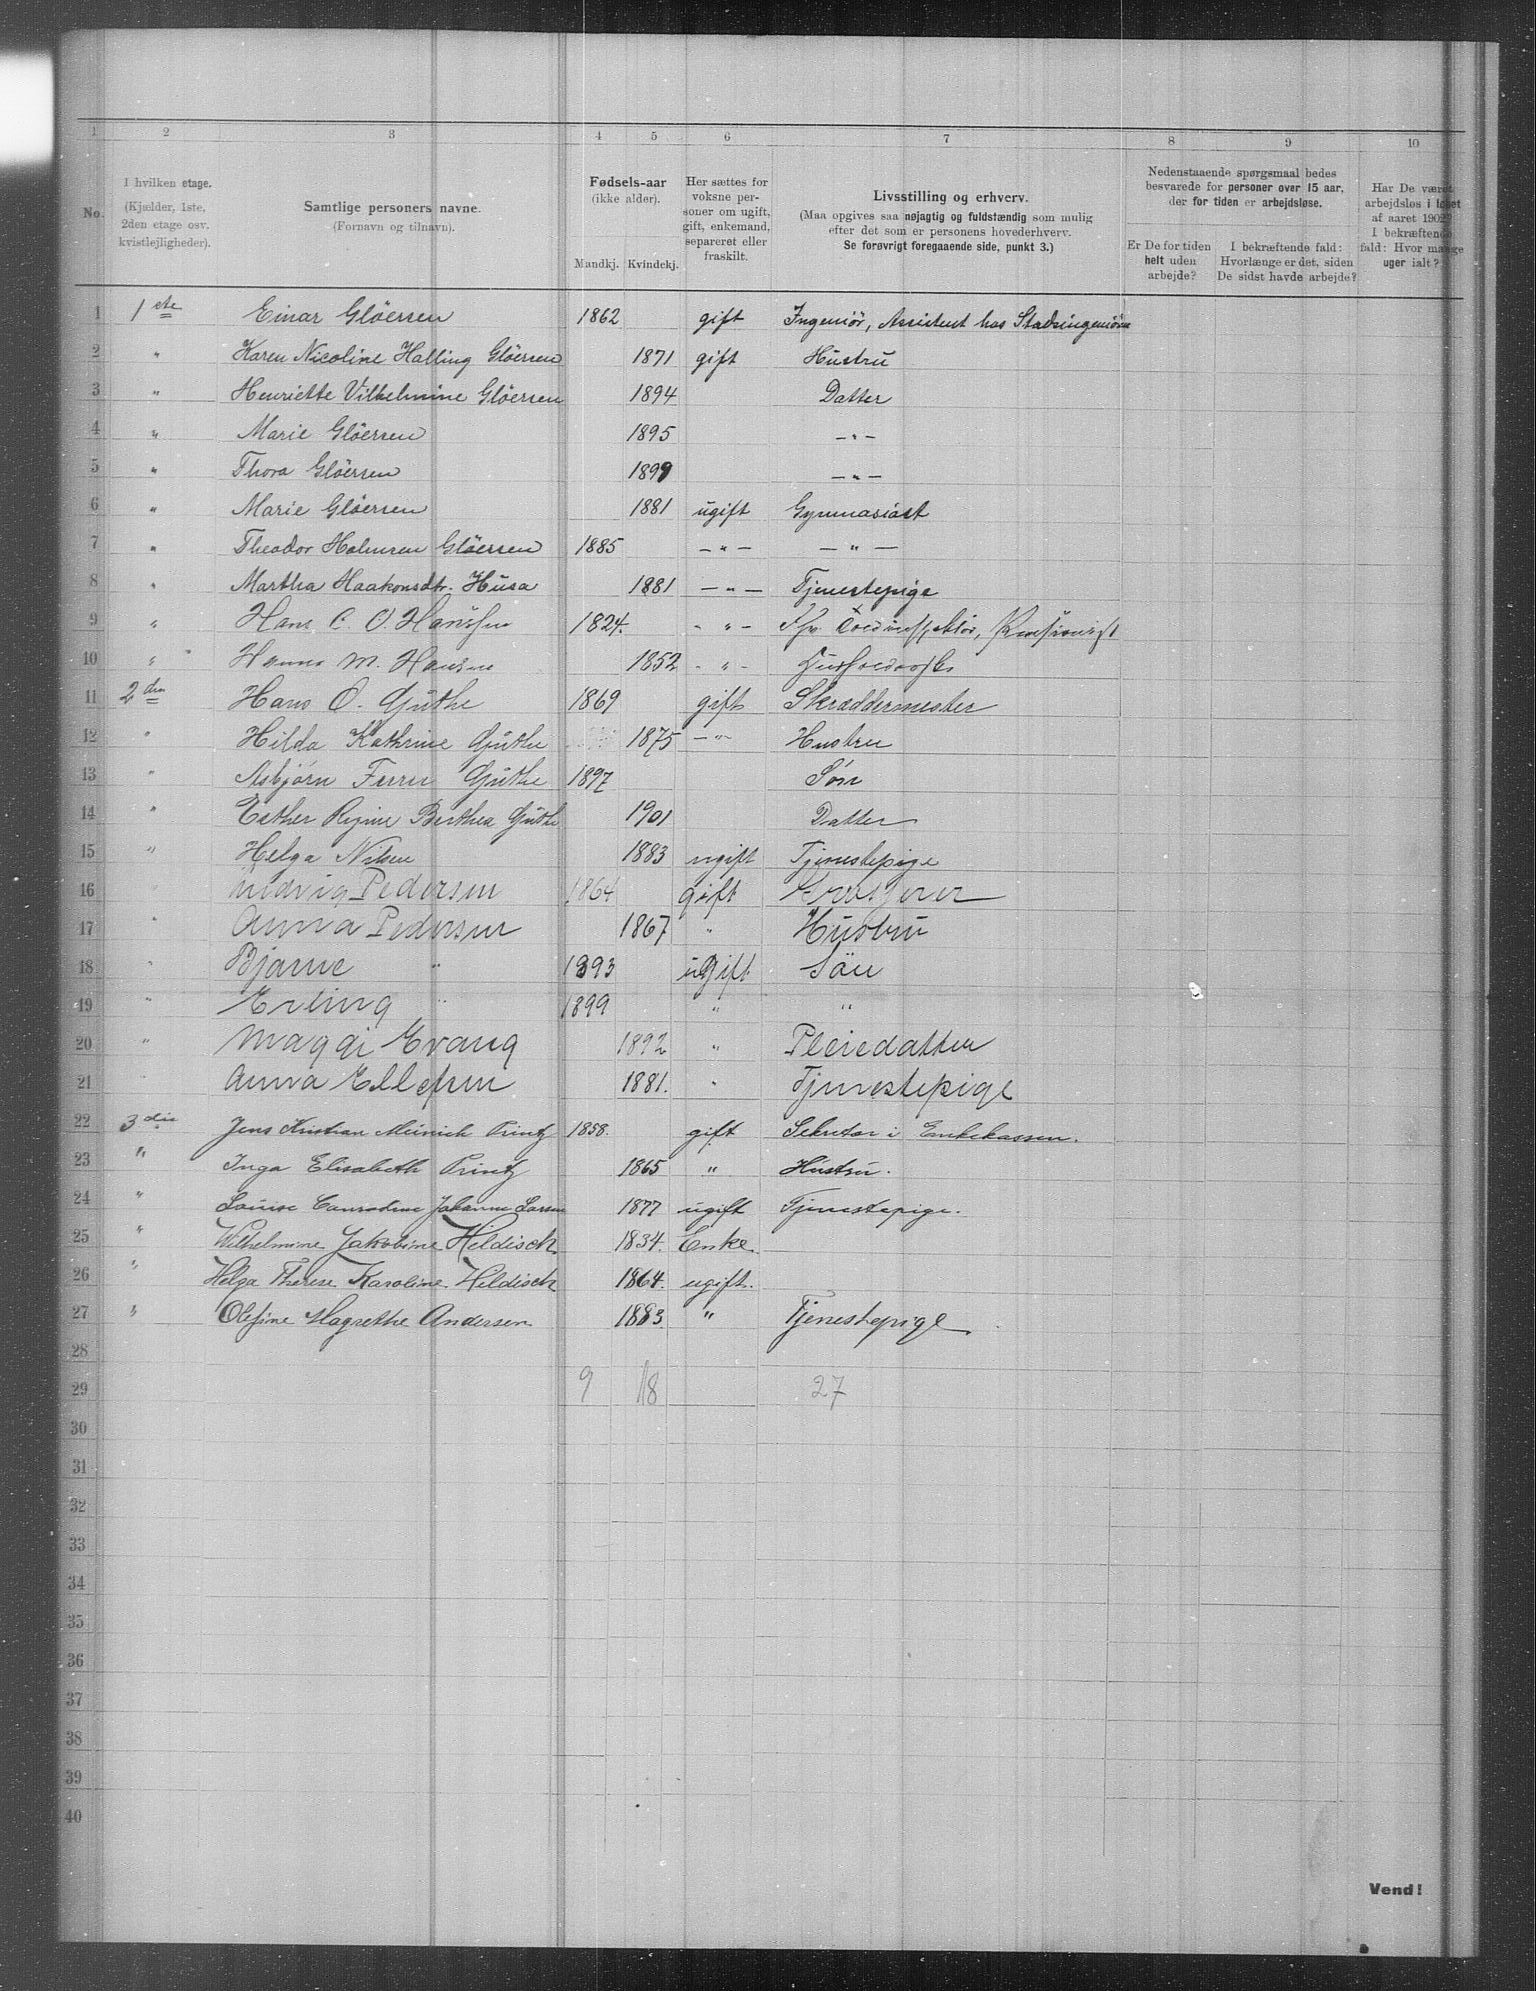 1 2 3 4 5 6 7 8 9 10
No.
I hvilken etage.
(Kjælder, 1ste,
2den etage osv.
kvistlejligheder).
Samtlige personers navne.
(Fornavn og tilnavn).
Fødsels-aar
(ikke alder).
Mandkj. Kvindekj.
Her sættes for
voksne per-
soner om ugift,
gift, enkemand,
separeret eller
fraskilt.
Livsstilling og erhverv.
(Maa opgives saa nøjagtig og fuldstændig som mulig
efter det som er personens hovederhverv.
Se forøvrigt foregaaende side, punkt 3.)
Nedenstaaende spørgsmaal bedes
besvarede for personer over 15 aar,
der for tiden er arbejdsløse.
Er De for tiden
helt uden
arbejde?
I bekræftende fald:
Hvorlænge er det, siden
De sidst havde arbejde?
Har De været
arbejdsløs i løbet
af aaret 1902?
I bekræftende
fald: Hvor mange
uger ialt?
1 1ste Einar Glöersen 1862 gift Ingeniör, Assistent hos Stadsingeniören
2 " Karen Nicoline Halling Glöersen 1871 gift Hustru
3 " Henriette Vilhelmine Glöersen 1894 Datter
4 " Marie Glöersen 1895 -"-
5 " Thora Glöersen 1899 -"-
6 " Marie Glöersen 1881 ugift Gymnasiast
7 " Theodor Holmsen Glöersen 1885 -"- -"-
8 " Martha Haakonsdtr. Husa 1881 -"- Tjenestepige
9 " Hans C. O. Hanssen 1824. -"- Fhv. Toldinspektör, Pensionist
10 " Hanna M. Hansen 1852 -"-
11 2den Hans O. Guthe 1869 gift Skræddermester
12 " Hilda Kathrine Guthe 1875 -"- Hustru
13 " Asbjörn Guthe 1897 Sön
14 " Esther Regine Berthea Guthe 1901 Datter
15 " Helga Nilsen 1883 ugift Tjenestepige
16 " Ludvig Pedersen 1864 gift Grosserer
17 " Anna Pedersen 1867 " Hustru
18 " Bjarne " 1893 ugift Sön
19 " Erling " 1899 " "
20 " Maggi Evang 1892 " Pleiedatter
21 " Anna Ellefsen 1881. " Tjenestepige
22 3die Jens Kristian Meinich Printz 1858. gift Sekretær i Enkekassen.
23 " Inga Elisabeth Printz 1865 " Hustru.
24 " Louise Conradine Johanne Larsen 1877 ugift Tjenestepige.
25 " Wilhelmine Jakobine Heldisch 1834. Enke.
26 " Helga Therese Karoline Heldisch 1864. ugift.
27 " Olefine Magrethe Andersen 1883. " Tjenestepige
28
29 9 18 27
30
31
32
33
34
35
36
37
38
39
40
Vend!